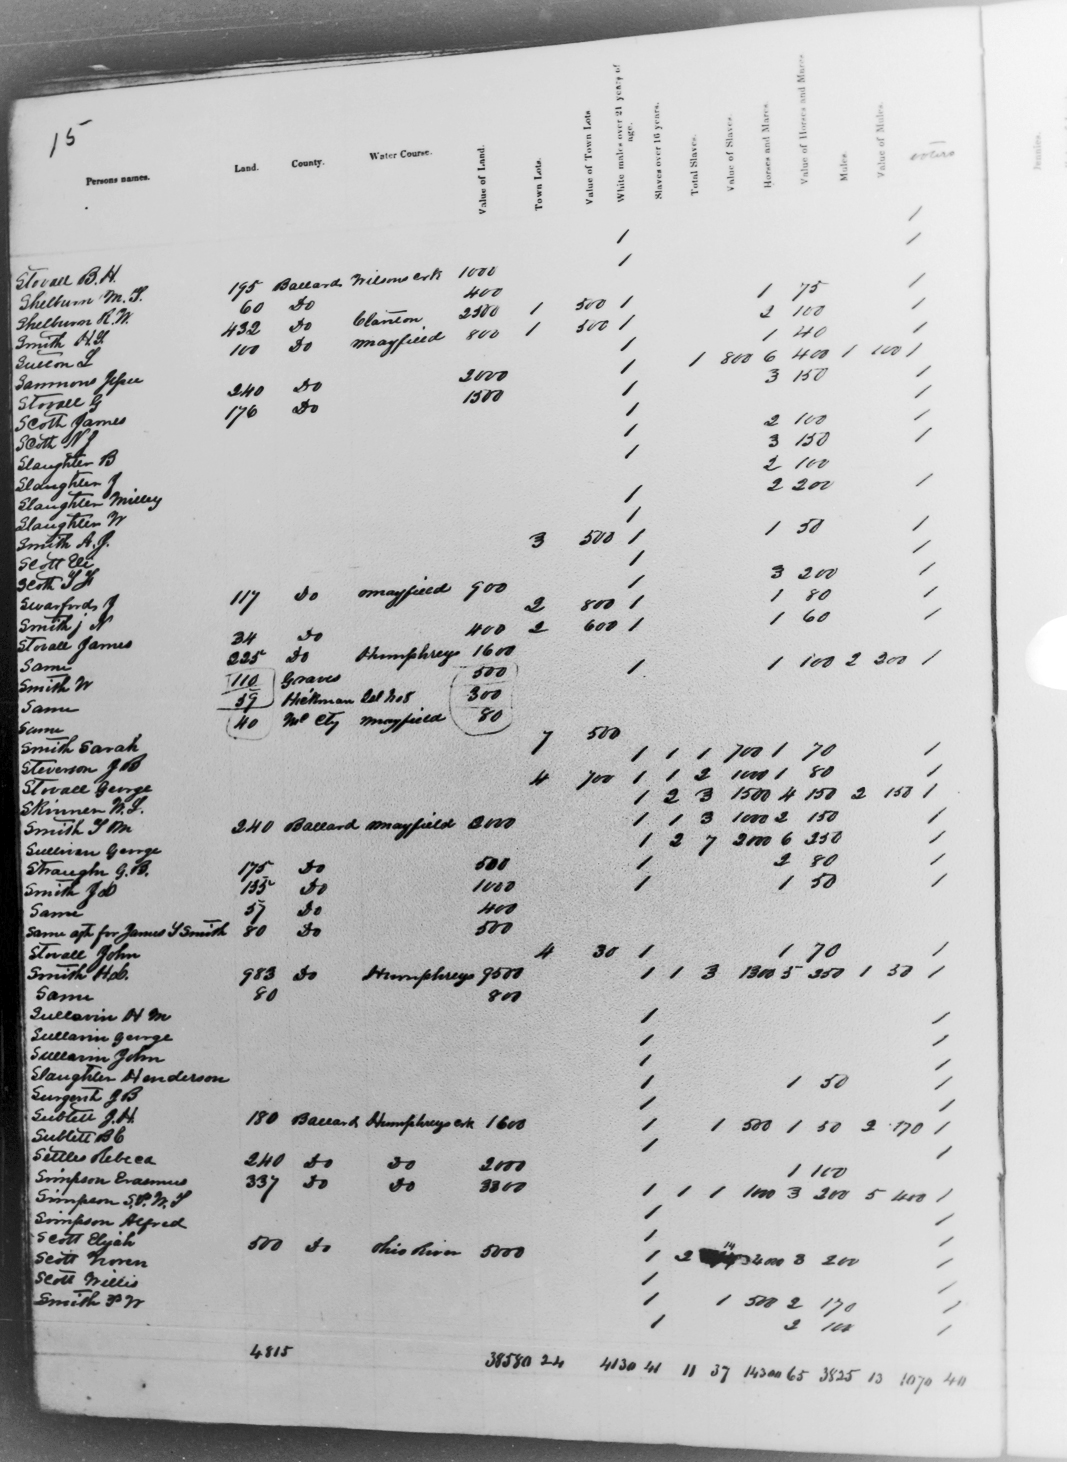 15
Persons names. Land. County. Water Course. Value of Land. Town Lots. Value of Town Lots White males over 21 years of age. Slaves over 16 years. Total Slaves. Value of Slaves. Horses and Mares. Value of Horses and Mares Mules. Value of Mules. voters
Stovall B. H. 195 Ballard Wilsons crk 1000 1 1
Shelburn M. T. 60 Do 400 1 1 75 1
Shelburn R. W. 432 Do Clanton 2500 1 500 1 2 100
Smith H. T. 100 Do Mayfield 800 1 300 1 1 40 1
1 1 800 6 400 1 100 1
Sammons Jesse 240 Do 2000 1 3 150
Stovall G 176 Do 1500 1 1
Scott James 1 2 100 1
Scott N J 1 3 150 1
Slaughter B 1 2 100
Slaughter J 2 200
Slaughter Milley 1 1
Slaughter W 1 1 50
Smith A. J. 3 500 1 1
Scott Eli 1 1
Scott 1 3 200 1
Swarfords J 117 Do Mayfield 900 1 80
Smith j N 2 800 1 1 60 1
Stovall James 34 Do 400 2 600 1 1
Same 225 Do Humphreys 1600
Smith W 110 Graves 500 1 1 100 2 200 1
Same 59 Hickman 300
Same 40 Mc Cty Mayfield 80
Smith Sarah 7 500
Steverson J B 1 1 1 700 1 70 1
Stovall George 4 700 1 1 2 1000 1 80 1
Skinner W. T. 1 2 3 1500 4 150 2 150 1
Smith T M 240 Ballard Mayfield 3000 1 1 3 1000 2 150 1
Sullivan George 1 2 7 2000 6 250 1
Straughn G. B. 175 Do 500 1 2 80 1
Smith J D 155 Do 1000 1 1 50 1
Same 57 Do 400
Same agt for James T Smith 80 Do 500
Stovall John 4 30 1 1 70 1
Smith H. D. 983 Do Humphreys 9500 1 1 3 1300 5 250 1 50 1
Same 80 800
Sullavin H M 1 1
Sullavin George 1 1
Sullavin John 1 1
Slaughter Henderson 1 1 50 1
Surgent J B 1 1
Sublett J. H. 180 Ballard Humphreys crk 1600 1 1 500 1 50 2 170 1
Sublett B C 1 1
Settles Rebeca 240 Do Do 2000 1 100
Simpson Erasmus 337 Do Do 3300 1 1 1 1000 3 200 5 400 1
Simpson W. T 1 1
Simpson Alfred 1 1
Scott Elijah 500 Do Ohio River 5000 1 2 14 3400 3 200
Scott 1 1
Scott Willis 1 1 500 2 170 1
Smith P W 1 2 100 1
4815 38580 24 4130 41 11 37 14300 65 3825 13 1070 40